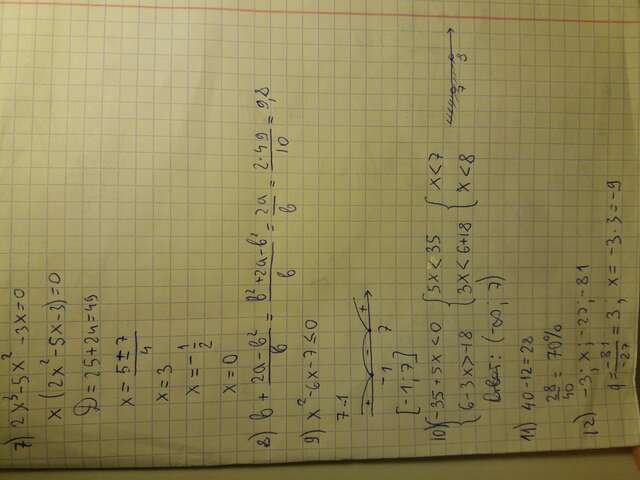 7) 2x³-5x²-3x=0
x(2x²-5x-3)=0
D=25+24=49
x=5±7/4
x=3
x=-1/2
x=0
8) b+2a-b²/b=b²+2a-b²/b=2a/b=2·49/10=9,8
9) x²-6x-7≤0
7-1
+ - +
-1 7
[-1;7]
10) {-35+5x<0 {5x<35 {x<7
6-3x>-18 3x<6+18 x<8
7 8
Ответ: (-∞; 7)
11) 40-12=28
28/40=70%
12) -3; x; -27; -81
q=-81/-27=3, x=-3·3=-9